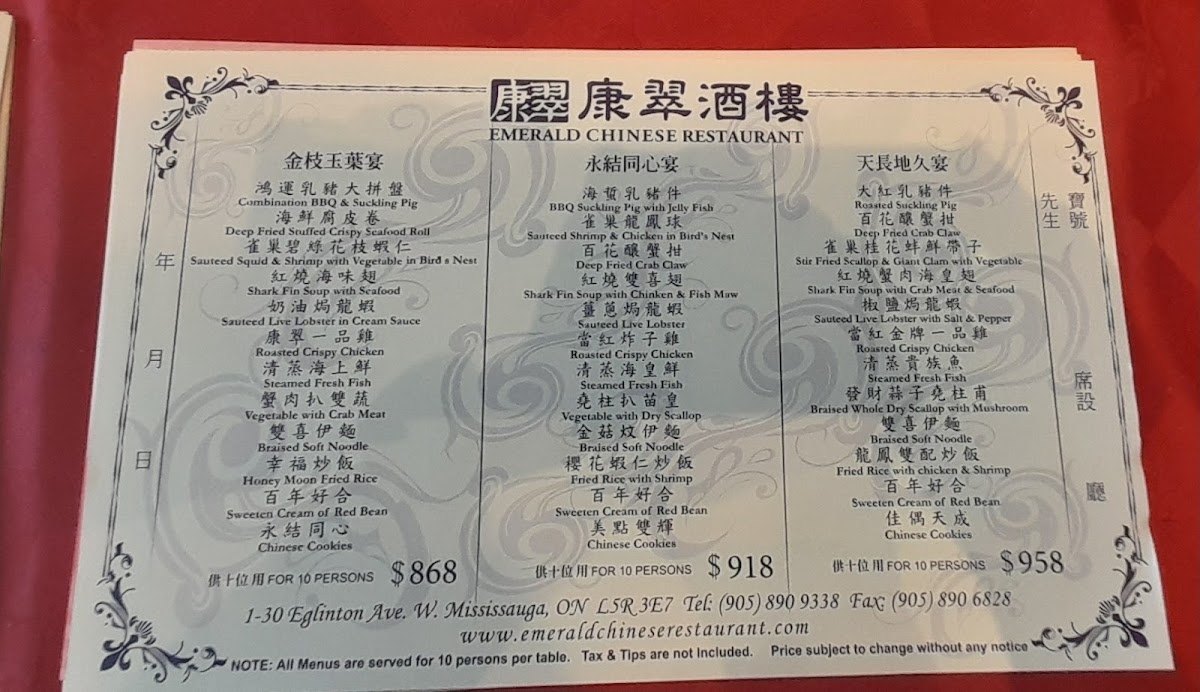 康翠 康翠酒樓
EMERALD CHINESE RESTAURANT
金枝玉葉宴
鴻運乳豬大拼盤
Combination BBQ & Suckling Pig
海鮮腐皮卷
Deep Fried Stuffed Crispy Seafood Roll
雀巢碧綠花枝蝦仁
Sauteed Squid & Shrimp with Vegetable in Bird's Nest
紅燒海味翅
Shark Fin Soup with Seafood
奶油焗龍蝦
Sauteed Live Lobster in Cream Sauce
康翠一品雞
Roasted Crispy Chicken
清蒸海上鮮
Steamed Fresh Fish
蟹肉扒雙蔬
Vegetable with Crab Meat
雙喜伊麵
Braised Soft Noodle
幸福炒飯
Honey Moon Fried Rice
百年好合
Sweeten Cream of Red Bean
永結同心
Chinese Cookies
供十位用 FOR 10 PERSONS $868
永結同心宴
海蜇乳豬件
BBQ Suckling Pig with Jelly Fish
雀巢龍鳳球
Sauteed Shrimp & Chicken in Bird's Nest
百花釀蟹拑
Deep Fried Crab Claw
紅燒雙喜翅
Shark Fin Soup with Chinken & Fish Maw
薑蔥焗龍蝦
Sauteed Live Lobster
當紅炸子雞
Roasted Crispy Chicken
清蒸海皇鮮
Steamed Fresh Fish
堯柱扒苗皇
Vegetable with Dry Scallop
金菇炆伊麵
Braised Soft Noodle
櫻花蝦仁炒飯
Fried Rice with Shrimp
百年好合
Sweeten Cream of Red Bean
美點雙輝
Chinese Cookies
供十位用 FOR 10 PERSONS $918
天長地久宴
大紅乳豬件
Roasted Suckling Pig
百花釀蟹拑
Deep Fried Crab Claw
雀巢桂花蚌鮮帶子
Stir Fried Scallop & Giant Clam with Vegetable
紅燒蟹肉海皇翅
Shark Fin Soup with Crab Meat & Seafood
椒鹽焗龍蝦
Sauteed Live Lobster with Salt & Pepper
當紅金牌一品雞
Roasted Crispy Chicken
清蒸貴族魚
Steamed Fresh Fish
發財蒜子堯柱甫
Braised Whole Dry Scallop with Mushroom
雙喜伊麵
Braised Soft Noodle
龍鳳雙配炒飯
Fried Rice with chicken & Shrimp
百年好合
Sweeten Cream of Red Bean
佳偶天成
Chinese Cookies
供十位用 FOR 10 PERSONS $958
寶號
先生
席設
廳
年
月
日
1-30 Eglinton Ave. W. Mississauga, ON L5R 3E7 Tel: (905) 890 9338 Fax: (905) 890 6828
www.emeraldchineserestaurant.com
NOTE: All Menus are served for 10 persons per table. Tax & Tips are not Included. Price subject to change without any notice